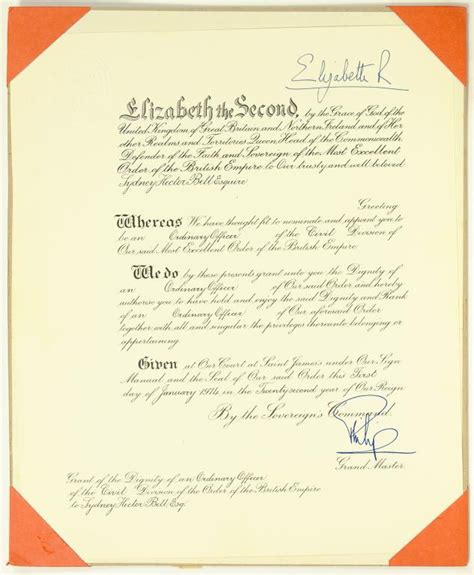 Elizabeth R
Elizabeth the Second, by the Grace of God of the
United Kingdom of Great Britain and Northern Ireland and of Her
other Realms and Territories Queen, Head of the Commonwealth,
Defender of the Faith and Sovereign of the Most Excellent
Order of the British Empire to Our trusty and well beloved
Sydney Hector Bell Esquire
Greeting
Whereas We have thought fit to nominate and appoint you to
be an Ordinary Officer of the Civil Division of
Our said Most Excellent Order of the British Empire
We do by these presents grant unto you the Dignity of
an Ordinary Officer of Our said Order and hereby
authorise you to have hold and enjoy the said Dignity and Rank
of an Ordinary Officer of Our aforesaid Order
together with all and singular the privileges thereunto belonging or
appertaining.
Given at Our Court at Saint James's under Our Sign
Manual and the Seal of Our said Order this First
day of January 1974 in the Twenty-second year of Our Reign
By the Sovereign's Command.
Philip
Grand Master
Grant of the Dignity of an Ordinary Officer
of the Civil Division of the Order of the British Empire
to Sydney Hector Bell Esq.